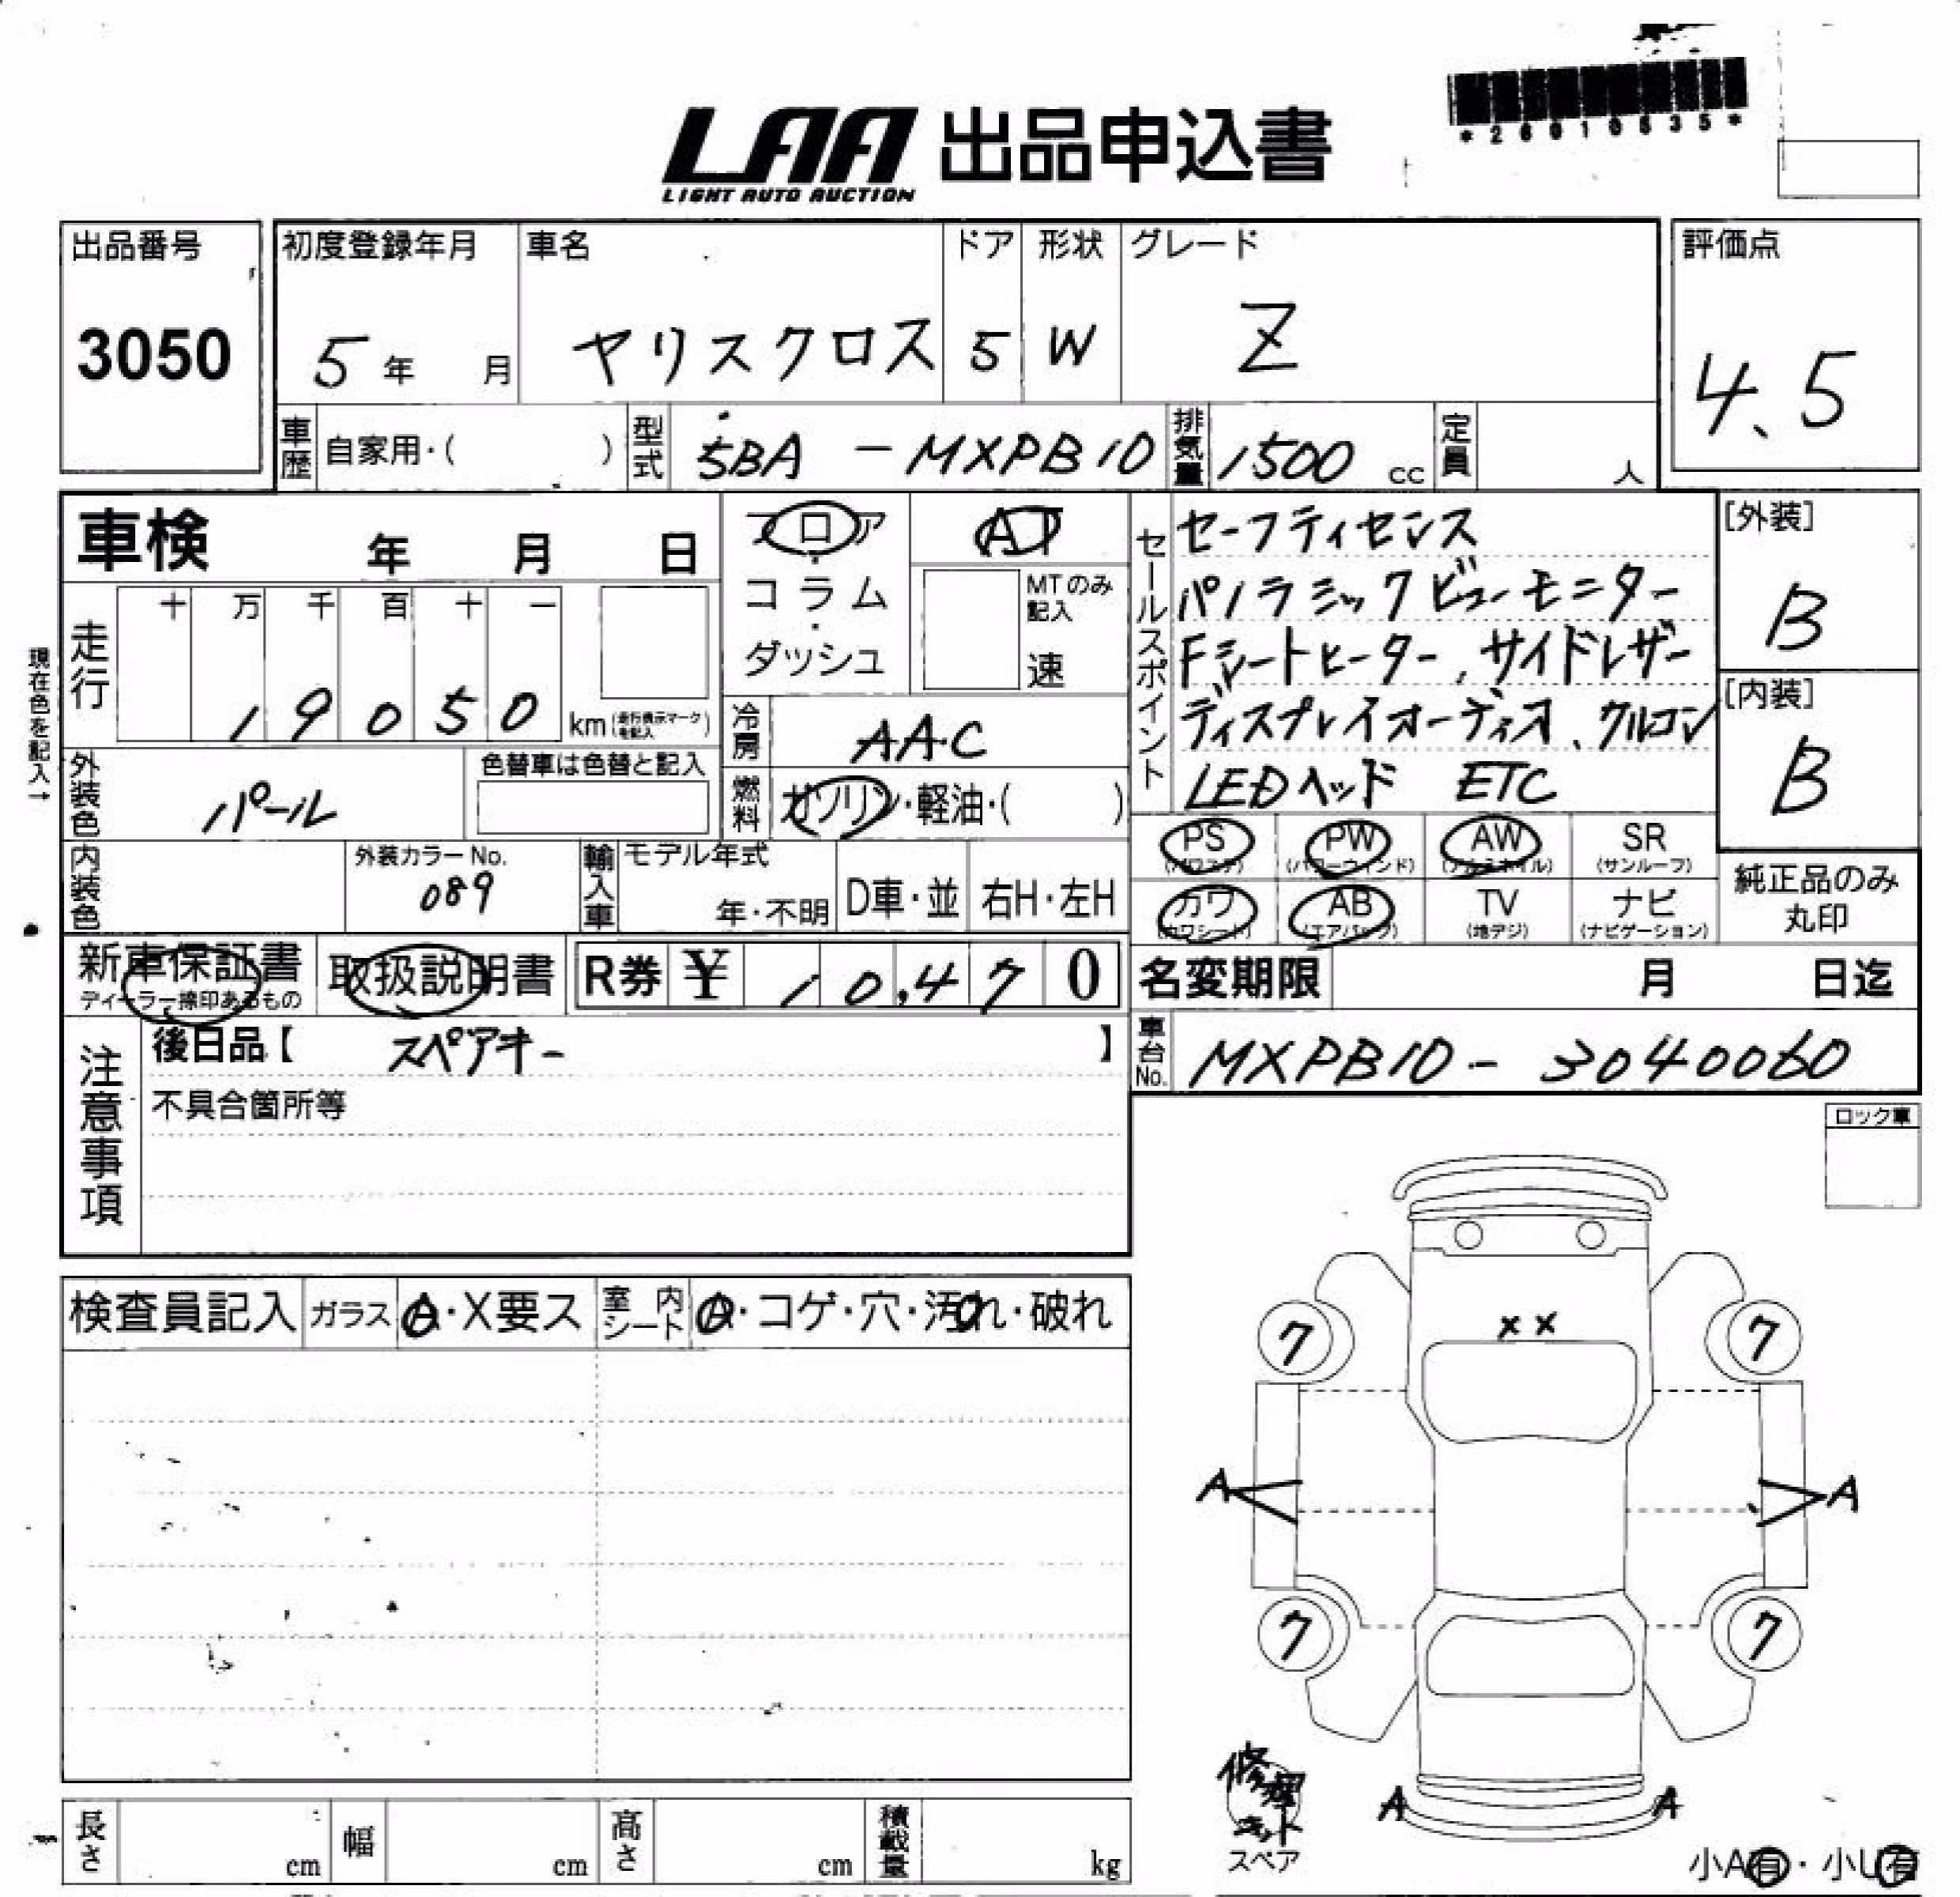 LAA 出品申込書
LIGHT AUTO AUCTION
*26010535*
出品番号
3050
初度登録年月
5年 月
車名
ヤリスクロス
ドア
5
形状
W
グレード
Z
評価点
4.5
車歴
自家用・( )
型式
5BA - MXPB10
排気量
1500 cc
定員
人
車検 年 月 日
フロア・コラム・ダッシュ
AT
MTのみ記入
速
現在色を記入→
走行
十 万 千 百 十 一
1 9 0 5 0 km (走行表示マークを記入)
冷房
AAC
燃料
ガソリン・軽油・( )
外装色
パール
色替車は色替と記入
内装色
外装カラーNo.
089
輸入車
モデル年式
年・不明
D車・並
右H・左H
セールスポイント
セーフティセンス
パノラミックビューモニター
Fシートヒーター、サイドレザー
ディスプレイオーディオ、クルコン
LEDヘッド ETC
[外装]
B
[内装]
B
PS (パワステ)
PW (パワーウィンド)
AW (アルミホイル)
SR (サンルーフ)
カワ (カワシート)
AB (エアバッグ)
TV (地デジ)
ナビ (ナビゲーション)
純正品のみ
丸印
新車保証書
ディーラー捺印あるもの
取扱説明書
R券 ¥ 10,470
名変期限 月 日迄
車台No.
MXPB10 - 3040060
注意事項
後日品【 スペアキー 】
不具合箇所等
ロック車
検査員記入
ガラス A・X要ス
室内シート A・コゲ・穴・汚れ・破れ
××
ク ク
A A
ク ク
A A
修理
キット
スペア
小A有・小U有
長さ cm
幅 cm
高さ cm
積載量 kg